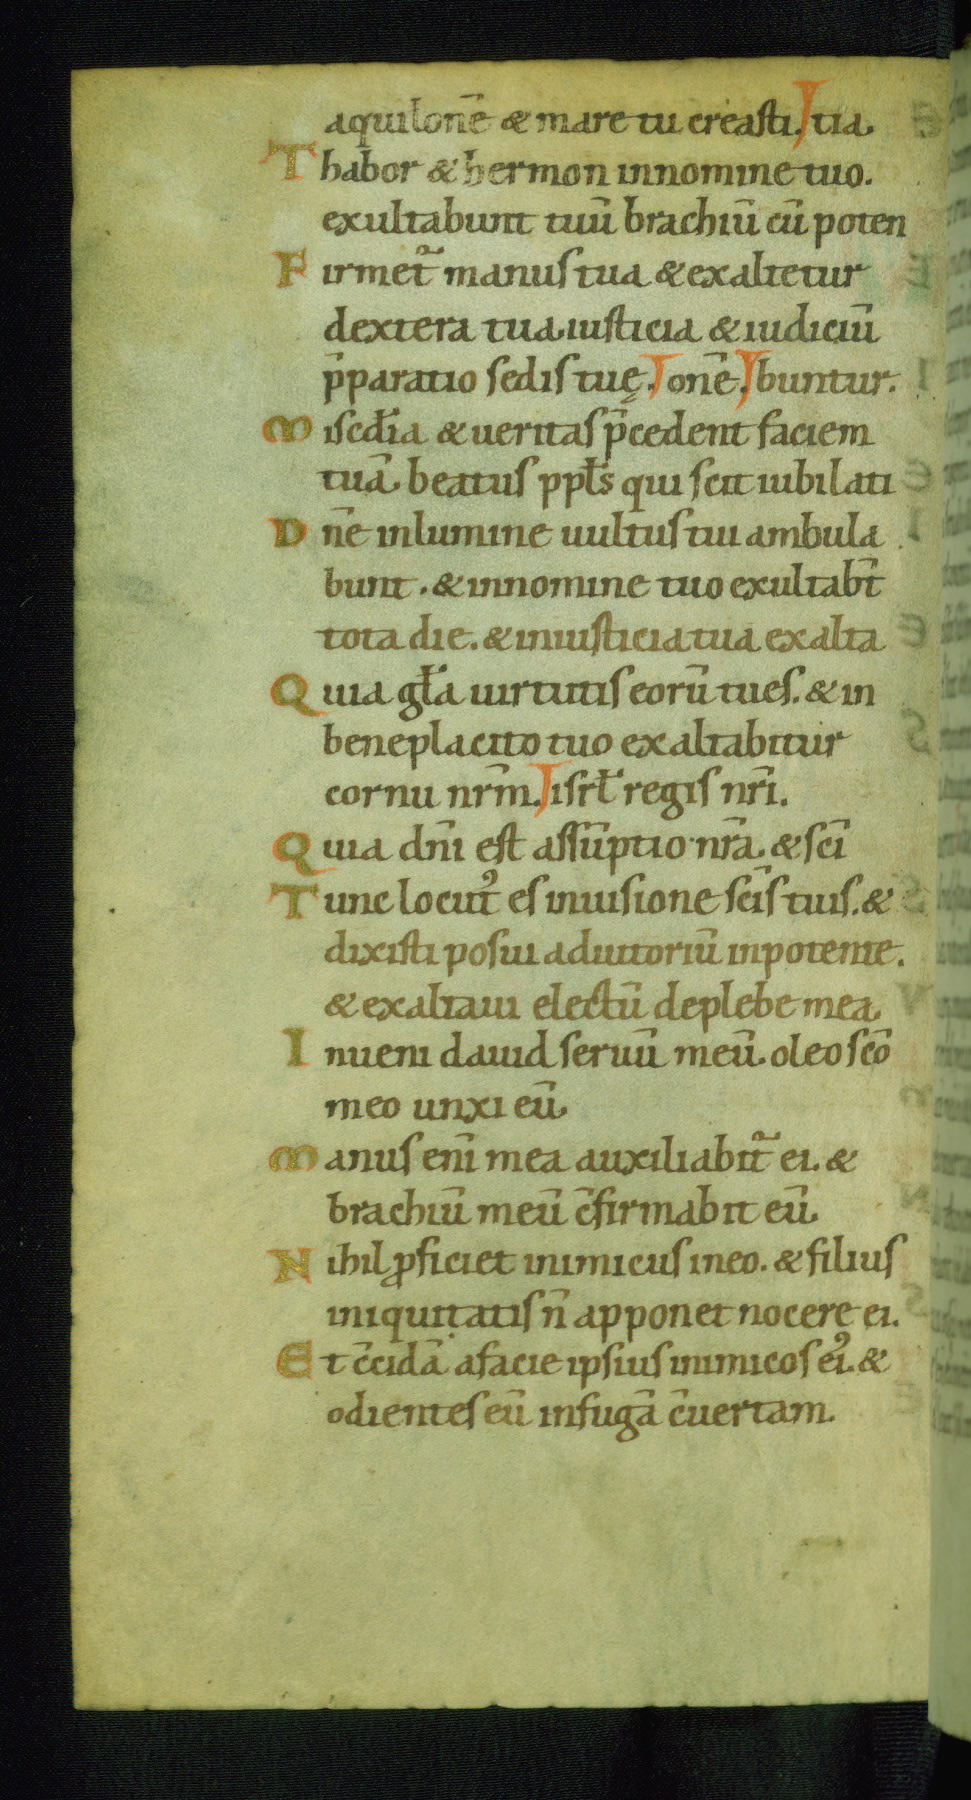 aquilonē & mare tu creasti. tia.
Thabor & hermon innomine tuo.
exultabunt tuū brachiū cū poten
Firmet᷑ manus tua & exaltetur
dextera tua. iusticia & iudiciū
p̄paratio sedis tuę. onē. buntur.
Miscd̄ia & ueritas p̄cedent faciem
tuā. beatus ppl̄s qui scit iubilati
Dn̄e inlumine uultus tui ambula
bunt. & innomine tuo exultabt̄
tota die. & iniusticia tua exalta
Quia gl̄a uirtutis eorū tu es. & in
beneplacito tuo exaltabitur
cornu nr̄m. isrl̄ regis nr̄i.
Quia dn̄i est assūptio nr̄a. & sc̄i
Tunc locut᾽ es inuisione sc̄is tuis. &
dixisti posui adiutoriū inpotente.
& exaltaui electū deplebe mea.
Inueni dauid seruū meū. oleo sc̄o
meo unxi eū.
Manus enī mea auxiliabit᷑ ei. &
brachiū meū c̄firmabit eū.
Nihil ꝓficiet inimicus ineo. & filius
iniquitatis n̄ apponet nocere ei.
Et c̄cidā afacie ipsius inimicos ei᾽. &
odientes eū infugā c̄uertam.